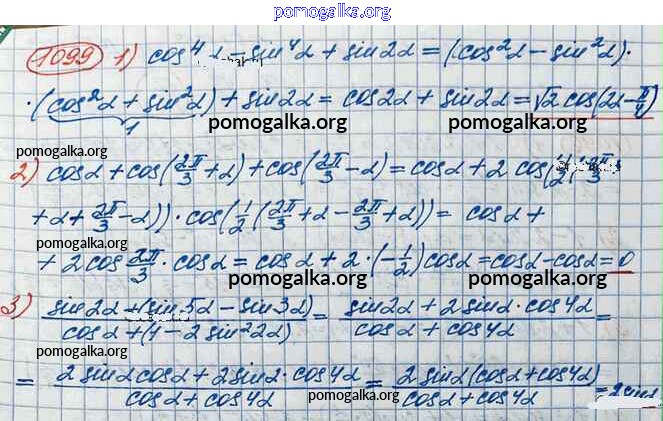 pomogalka.org
1099 1) cos⁴α - sin⁴α + sin2α = (cos²α - sin²α)·
·(cos²α + sin²α) + sin2α = cos2α + sin2α = √2 cos(2α - π/4)
1
pomogalka.org pomogalka.org
pomogalka.org
2) cosα + cos(2π/3 + α) + cos(2π/3 - α) = cosα + 2 cos(1/2 (2π/3 +
+ α + 2π/3 - α)) · cos(1/2 (2π/3 + α - 2π/3 + α)) = cosα +
pomogalka.org
+ 2cos 2π/3 · cosα = cosα + 2·(-1/2)cosα = cosα - cosα = 0
pomogalka.org pomogalka.org
3) (sin2α + (sin5α - sin3α))/(cosα + (1 - 2sin²2α)) = (sin2α + 2sinα·cos4α)/(cosα + cos4α) =
pomogalka.org
= (2sinαcosα + 2sinα·cos4α)/(cosα + cos4α) = (2sinα(cosα + cos4α))/(cosα + cos4α) = 2sinα
pomogalka.org pomogalka.org